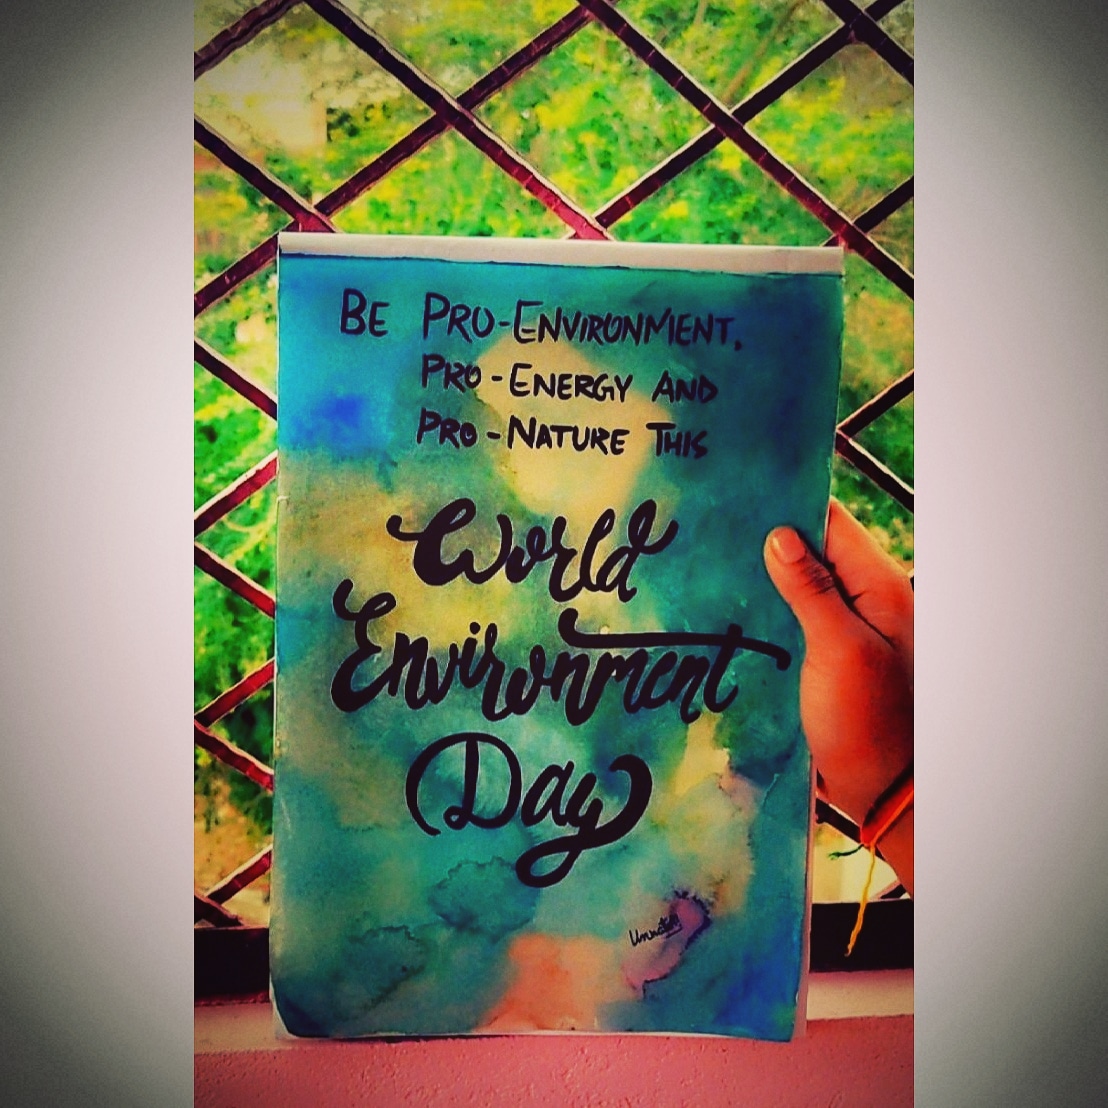 BE PRO-ENVIRONMENT,
PRO-ENERGY AND
PRO-NATURE THIS
World
Environment
Day